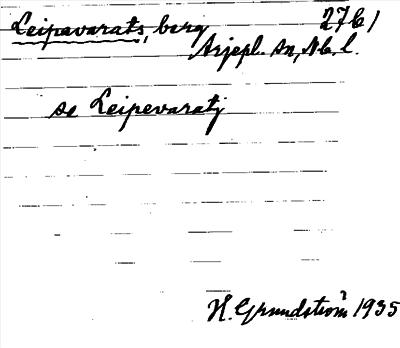 Leipavarats, berg 2761
Arjepl. sn, Nb. l.
se Leipevaratj
H. Grundström 1935